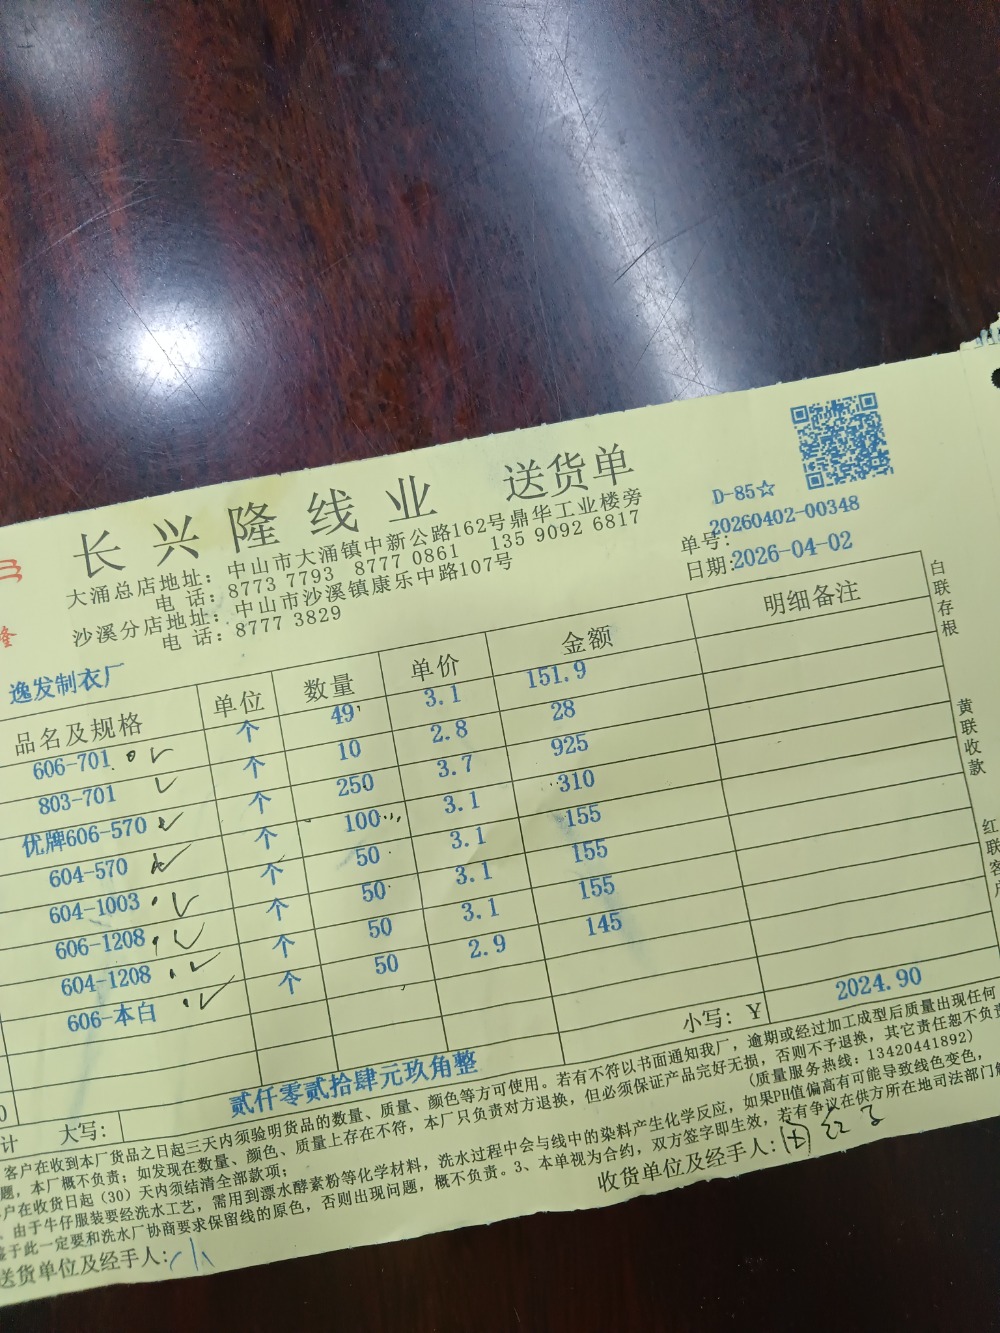 长兴隆线业 送货单
D-85☆
大涌总店地址：中山市大涌镇中新公路162号鼎华工业楼旁
电 话：8773 7793 8777 0861 135 9092 6817
沙溪分店地址：中山市沙溪镇康乐中路107号
电 话：8777 3829
单号：20260402-00348
日期：2026-04-02
隆
逸发制衣厂
品名及规格 单位 数量 单价 金额 明细备注
606-701 个 49 3.1 151.9
803-701 个 10 2.8 28
优牌606-570 个 250 3.7 925
604-570 个 100 3.1 310
604-1003 个 50 3.1 155
606-1208 个 50 3.1 155
604-1208 个 50 3.1 155
606-本白 个 50 2.9 145
小写：¥ 2024.90
计 大写：贰仟零贰拾肆元玖角整
客户在收到本厂货品之日起三天内须验明货品的数量、质量、颜色等方可使用。若有不符以书面通知我厂，逾期或经过加工成型后质量出现任何
题，本厂概不负责；如发现在数量、颜色、质量上存在不符，本厂只负责对方退换，但必须保证产品完好无损，否则不予退换，其它责任恕不负责
户在收货日起（30）天内须结清全部款项；
（质量服务热线：13420441892）
由于牛仔服装要经洗水工艺，需用到漂水酵素粉等化学材料，洗水过程中会与线中的染料产生化学反应，如果PH值偏高有可能导致线色变色，
鉴于此一定要和洗水厂协商要求保留线的原色，否则出现问题，概不负责。3、本单视为合约，双方签字即生效，若有争议在供方所在地司法部门解
送货单位及经手人：
收货单位及经手人：
白联存根
黄联收款
红联客户